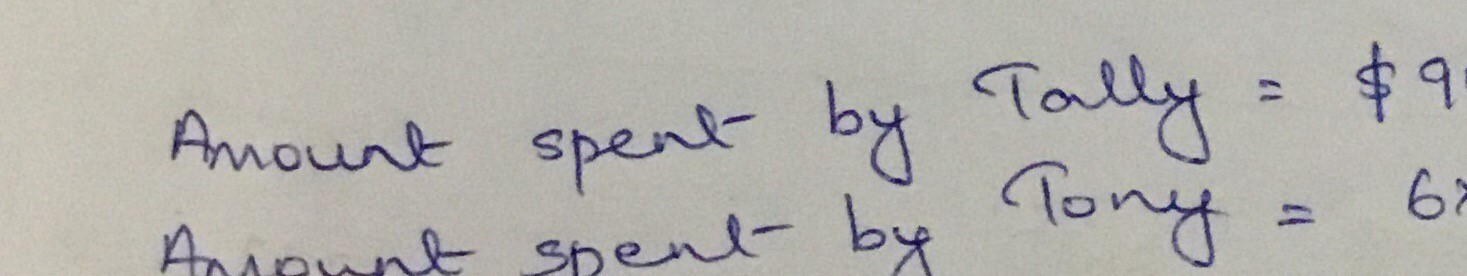 Amount spent by Tally = $9
Amount spent by Tony = 6